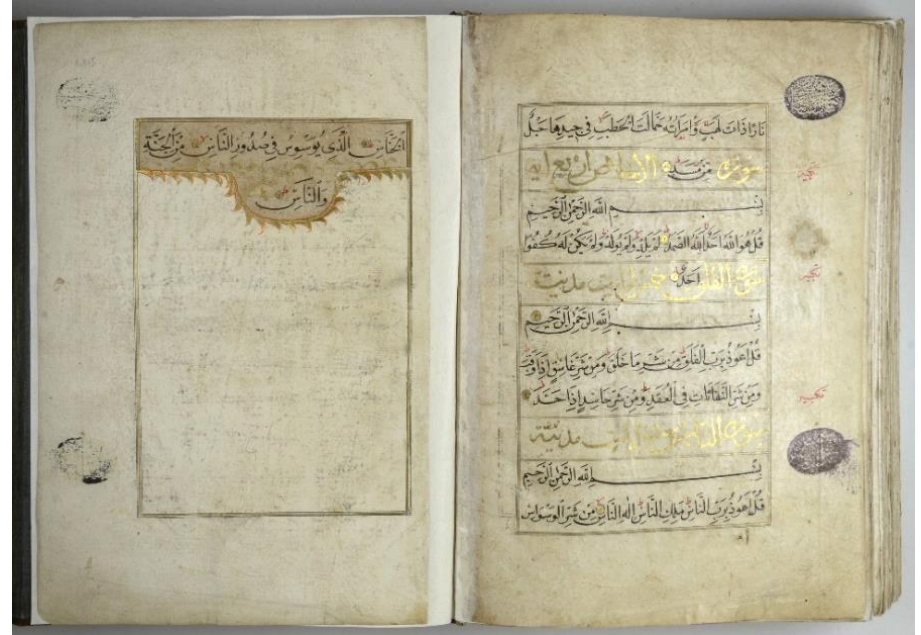 نَارًا ذَاتَ لَهَبٍ وَامْرَاَتُهُ حَمَّالَتَ الْحَطَبِ فِي جِيدِهَا حَبْلٌ
سورة مِنْ مَسَدٍ الاخلاص اربع ايه
بِسْمِ اللّٰهِ الرَّحْمٰنِ الرَّحِيمِ
تكبير
قُلْ هُوَ اللّٰهُ اَحَدٌ اَللّٰهُ الصَّمَدُ لَمْ يَلِدْ وَلَمْ يُولَدْ وَلَمْ يَكُنْ لَهُ كُفُوًا
سورة الفلق اَحَدٌ خمس ايات مدنية
تكبير
بِسْمِ اللّٰهِ الرَّحْمٰنِ الرَّحِيمِ
قُلْ اَعُوذُ بِرَبِّ الْفَلَقِ مِنْ شَرِّ مَا خَلَقَ وَمِنْ شَرِّ غَاسِقٍ اِذَا وَقَبَ
وَمِنْ شَرِّ النَّفَّاثَاتِ فِي الْعُقَدِ وَمِنْ شَرِّ حَاسِدٍ اِذَا حَسَدَ
تكبير
سورة الناس ايات مدنية
بِسْمِ اللّٰهِ الرَّحْمٰنِ الرَّحِيمِ
قُلْ اَعُوذُ بِرَبِّ النَّاسِ مَلِكِ النَّاسِ اِلٰهِ النَّاسِ مِنْ شَرِّ الْوَسْوَاسِ
الْخَنَّاسِ الَّذِي يُوَسْوِسُ فِي صُدُورِ النَّاسِ مِنَ الْجِنَّةِ
وَالنَّاسِ